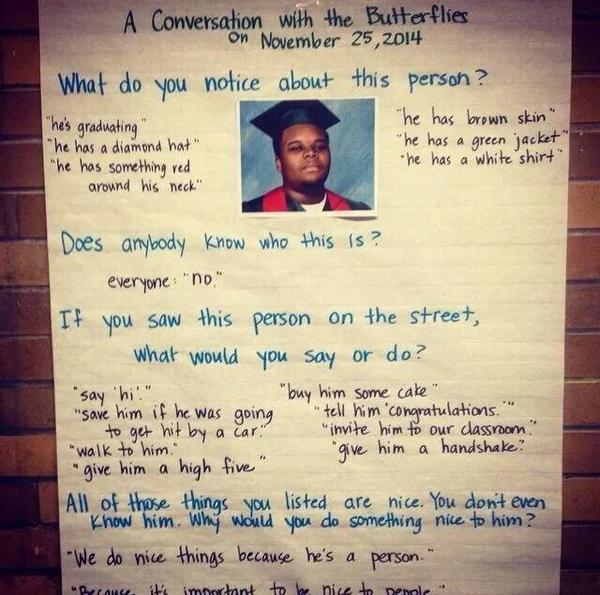 A Conversation with the Butterflies
On November 25, 2014
What do you notice about this person?
"he's graduating"
"he has a diamond hat"
"he has something red
around his neck"
"he has brown skin"
"he has a green jacket"
"he has a white shirt"
Does anybody know who this is?
everyone: "no."
If you saw this person on the street,
what would you say or do?
"say 'hi'."
"save him if he was going
to get hit by a car."
"walk to him."
"give him a high five"
"buy him some cake"
"tell him 'congratulations.'"
"invite him to our classroom."
"give him a handshake."
All of those things you listed are nice. You don't even
know him. Why would you do something nice to him?
"We do nice things because he's a person."
"Because it's important to be nice to people."